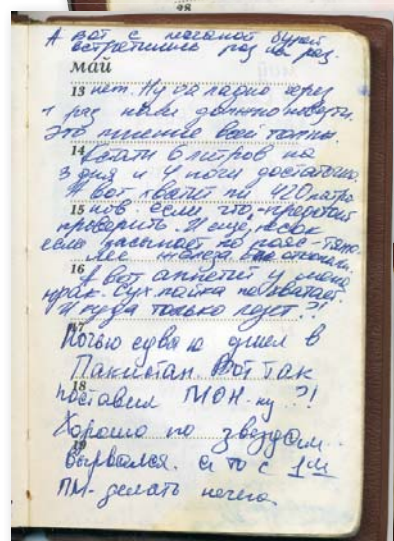 А вот с песчаной бурей
встретились раз на раз.
май
13 нет. Ну да ладно через
1 раз нам должно повезти.
Это мнение всей толпы.
14 Кстати 6 литров на
3 дня и 4 ночи достаточно.
А вот хватит ли 420 патро
15 нов. Если что,-предстоит
проверить. И еще, песок
если засыпает по пояс-тяже
лее
16 А вот аппетит у меня
мрак. Сух. пайка не хватает.
И куда только лезет?!
17
Ночью едва не ушел в
Пакистан. Вот так
18
поставил МОН-ку?!
Хорошо по звездам
19
вырвался. а то с 1м
ПМ-делать нечего.